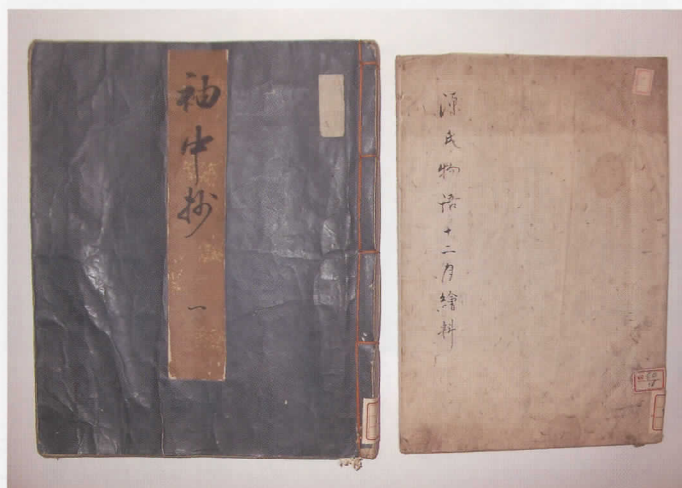 袖中抄 一
源氏物語十二月繪料